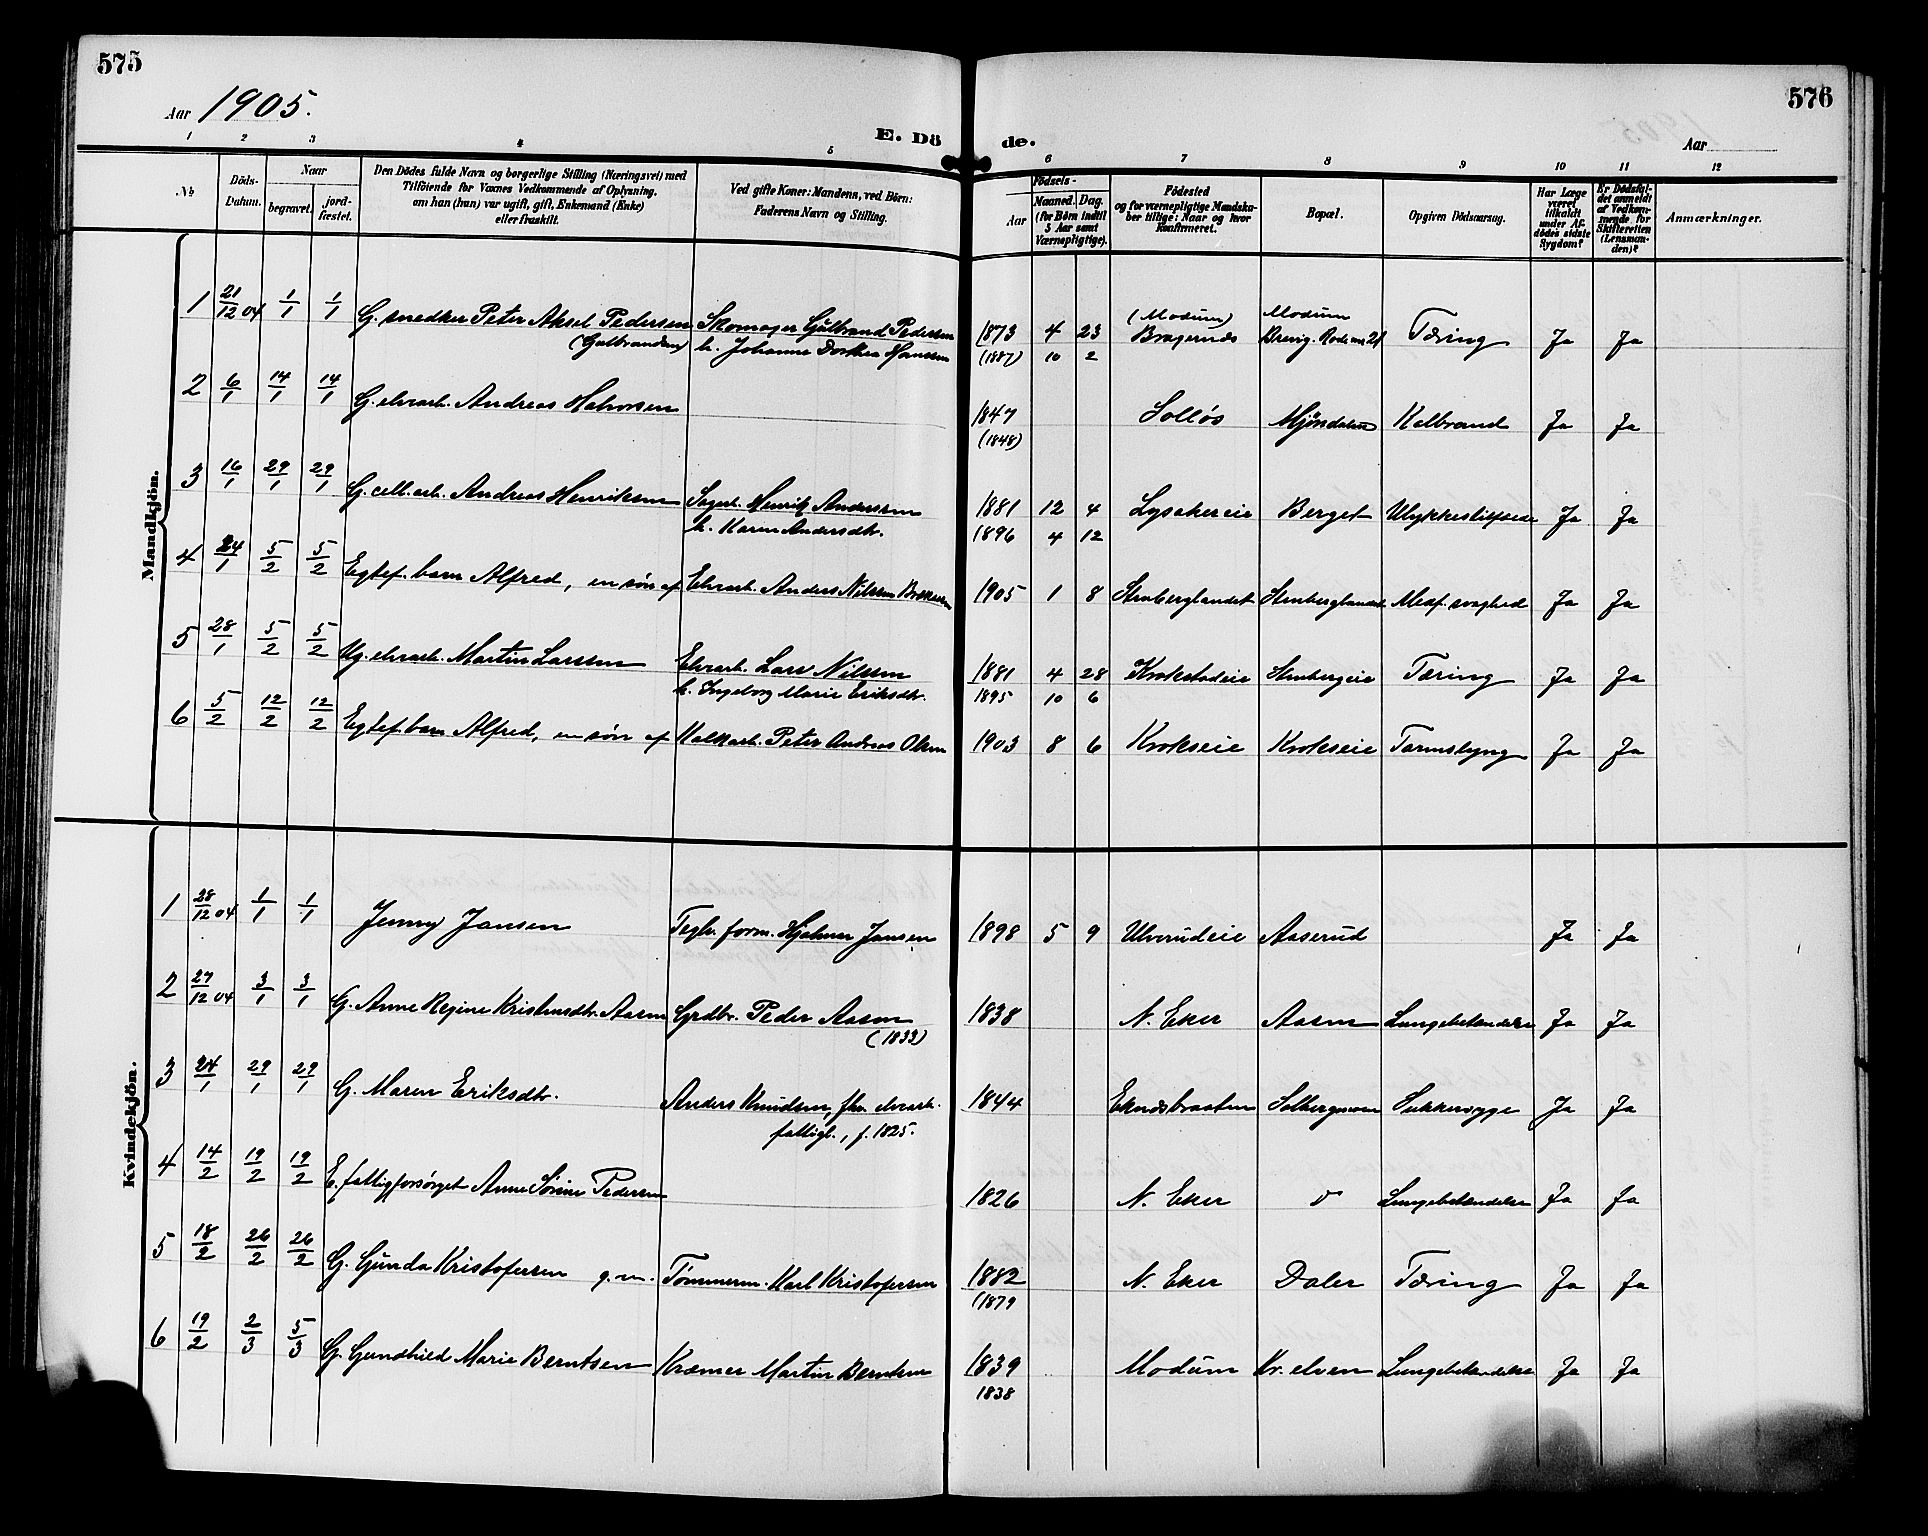 575
576
Aar 1905.
Aar
E. Dö
de.
1 2 3 4 5 6 7 8 9 10 11 12
№
Döds-
Datum.
Naar
begravet.
jord-
fæstet.
Den Dödes fulde Navn og borgerlige Stilling (Næringsvei) med
Tilföiende for Voxnes Vedkommende af Oplysning,
om han (hun) var ugift, gift, Enkemand (Enke)
eller fraskilt.
Ved gifte Koner: Mandens, ved Börn:
Faderens Navn og Stilling.
Födsels-
Aar
Maaned.
Dag.
(for Börn indtil
5 Aar samt
Værnepligtige).
Födested
og for værnepligtige Mandska-
ber tillige: Naar og hvor
konfirmeret.
Bopæl.
Opgiven Dödsaarsag.
Har Læge
været
tilkaldt
under Af-
dödes sidste
Sygdom?
Er Dödsfal-
det anmeldt
af Vedkom-
mende for
Skifteretten
(Lensman-
den)?
Anmærkninger.
Mandkjön.
1 21/12 04 1/1 1/1 G. snedker Peter Aksel Pedersen Skomager Gulbrand Pedersen 1873 4 23 (Modum) Bragernæs Modum Tæring Ja Ja
(Gulbrandsen) h. Johanne Dorthea Hansen (1887) 10 2
2 6/1 14/1 14/1 G. elvearb. Andreas Halvorsen 1847 Solløs Mjöndalen Kolbrand Ja Ja
(1848)
3 16/1 29/1 29/1 G. cell.arb. Andreas Henriksen Sagarb. Henrik Anderssen 1881 12 4 Lysakereie Berget Ulykkestilfælde Ja Ja
h. Karen Andersdtr. 1896 4 12
4 24/1 5/2 5/2 Egtef. barn Alfred, en søn af Elvearb. Anders Nilssen 1905 1 8 Stenberglandet Stenberglandet Medf. svaghed Ja Ja
5 28/1 5/2 5/2 Ug. elvearb. Martin Larssen Elvearb. Lars Nilssen 1881 4 28 Krokstadeie Stenbergeie Tæring Ja Ja
h. Ingeborg Marie Eriksdtr. 1895 10 6
6 5/2 12/2 12/2 Egtef. barn Alfred, en søn af Kalkarb. Peter Andreas Olsen 1903 8 6 Krokseie Krokseie Tarmslyng Ja Ja
Kvindekjön.
1 28/12 04 1/1 1/1 Jenny Jansen Teglv. form. Hjalmar Jansen 1898 5 9 Ulverudeie Aaserud Ja Ja
2 27/12 04 3/1 3/1 G. Anne Regine Kristensdtr. Aasen Grdbr. Peder Aasen 1838 N. Eker Aasen Lungebetændelse Ja Ja
(1833)
3 24/1 29/1 29/1 G. Maren Eriksdtr. Anders Knudsen, fhv. elvearb. 1844 Eknesbraaten Solbergmoen Sukkersyge Ja Ja
fattigl., f. 1825.
4 14/2 19/2 19/2 E. fattigforsørget Anne Sørine Pedersen 1826 N. Eker Lungebetændelse Ja Ja
5 18/2 26/2 26/2 G. Gunda Kristofersen g. m. Tømmerm. Karl Kristofersen 1882 N. Eker Daler Tæring Ja Ja
(1879
6 19/2 2/3 5/3 G. Gundhild Marie Berntsen Kræmer Martin Berntsen 1839 Modum Kr. elven Lungebetændelse Ja Ja
1838